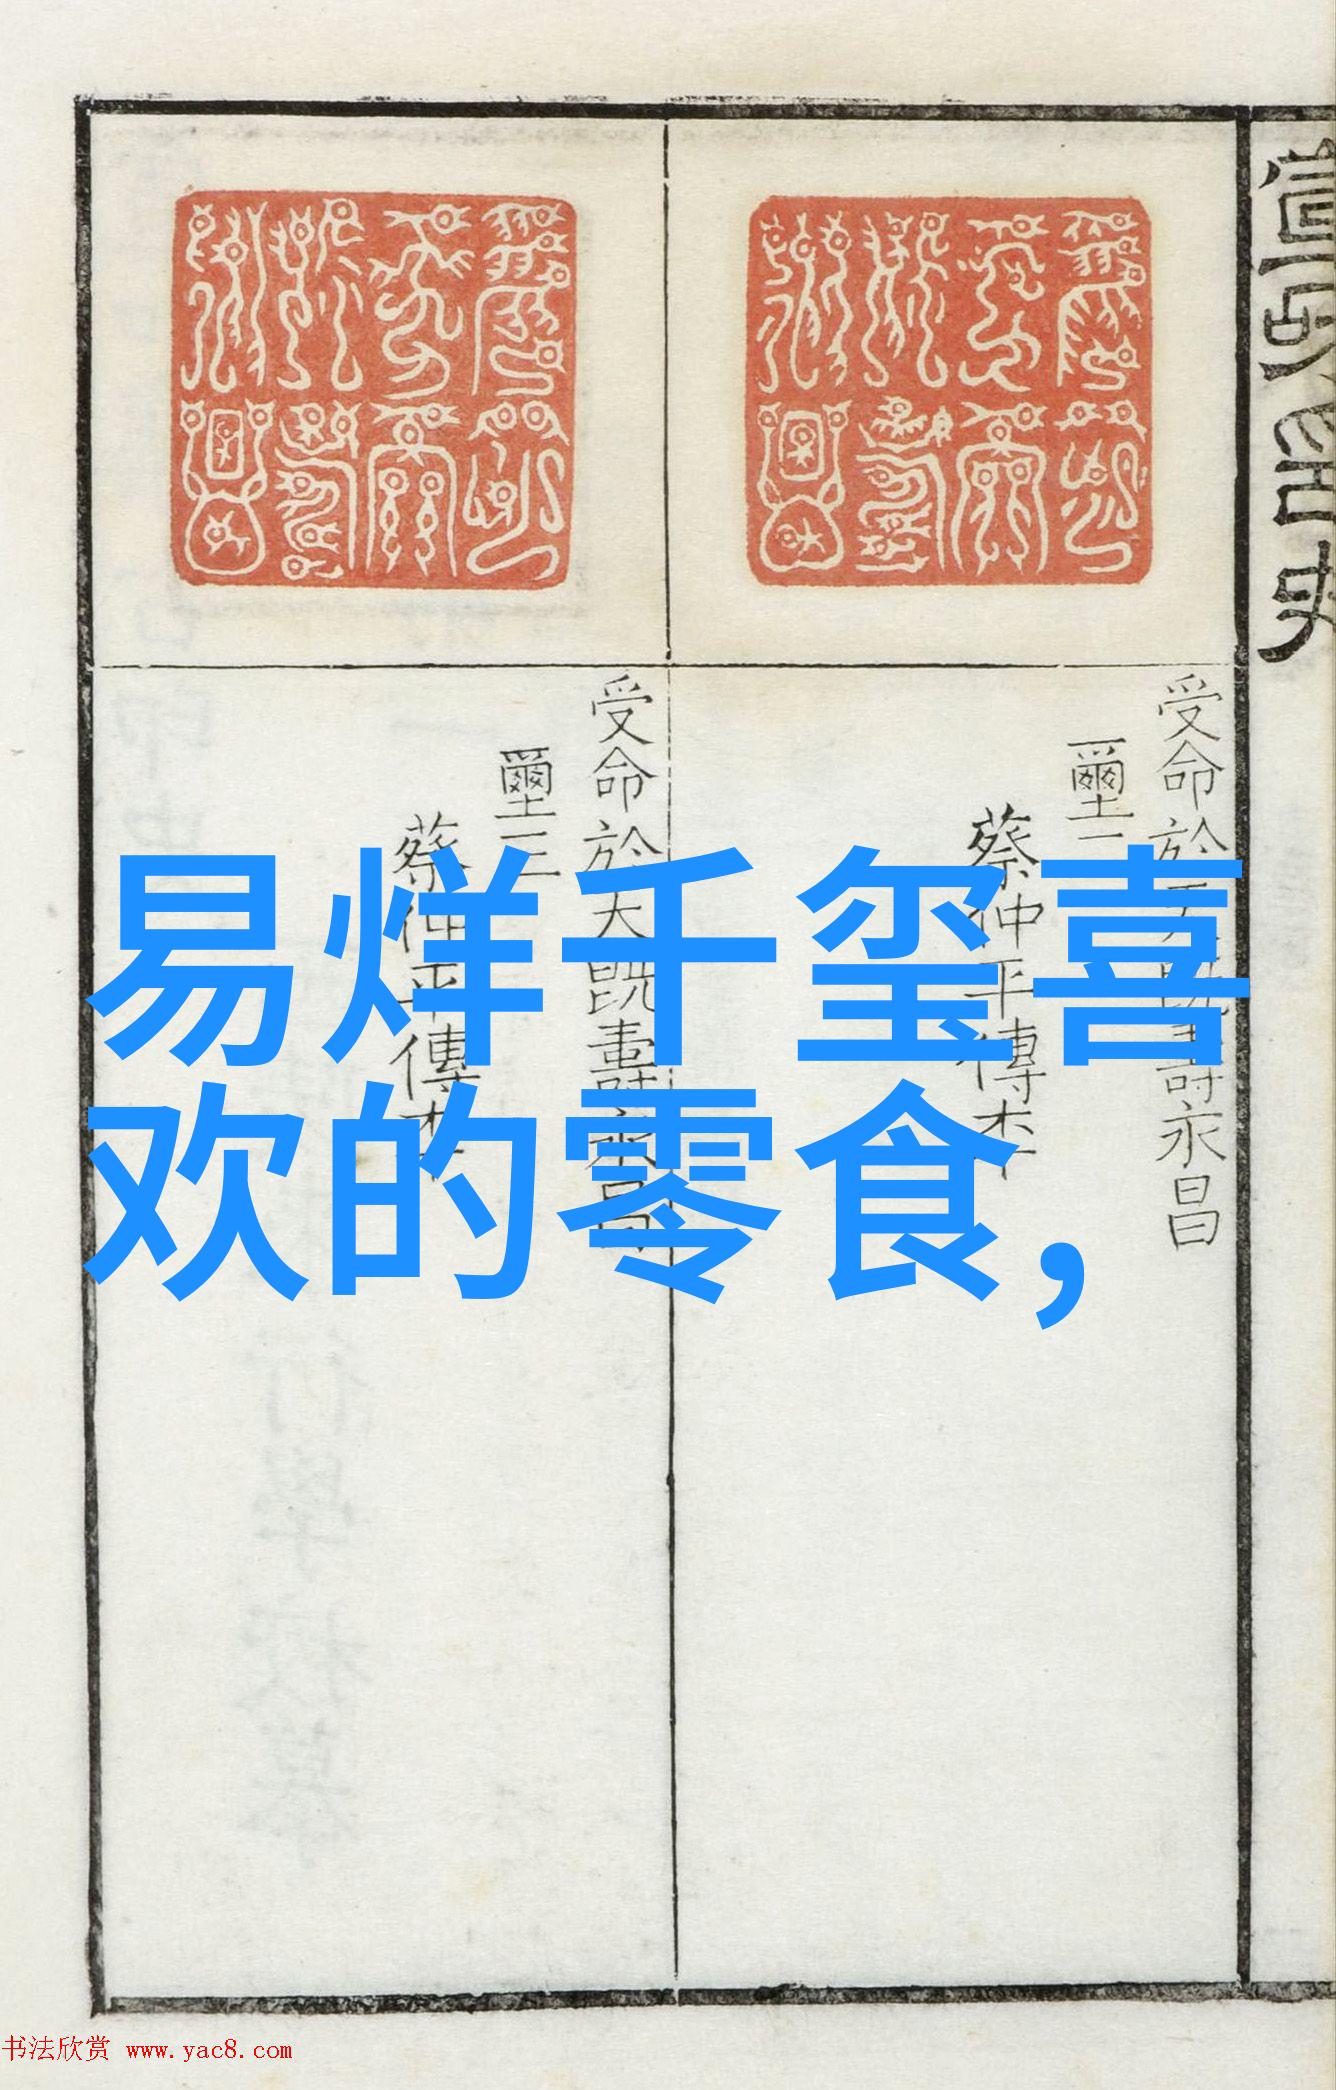 受命於天既壽永昌
璽二
蔡仲平傳本
受命於天既壽永昌
璽三
蔡仲平傳本
易烊千玺喜
欢的零食,
书法欣赏 www.yac8.com